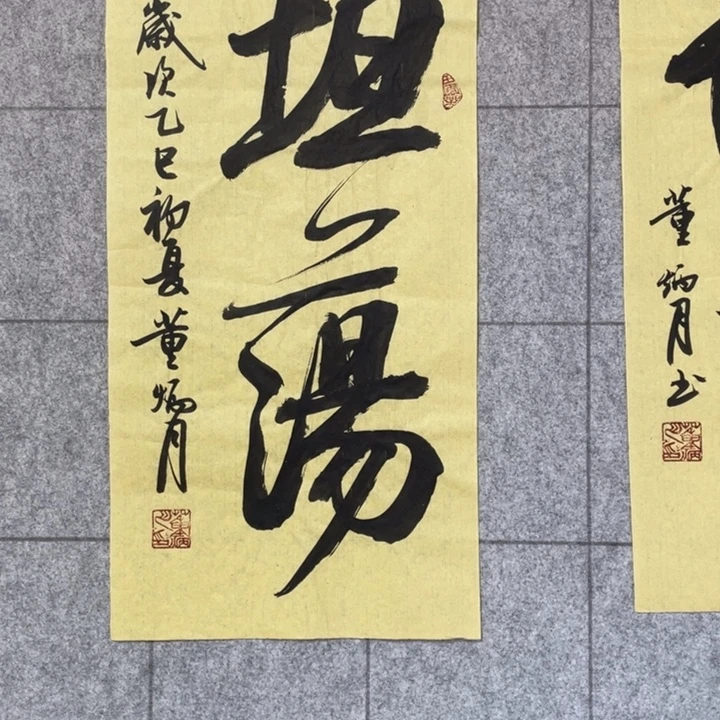 坦蕩
歲次乙巳初夏董炳月
董炳月书